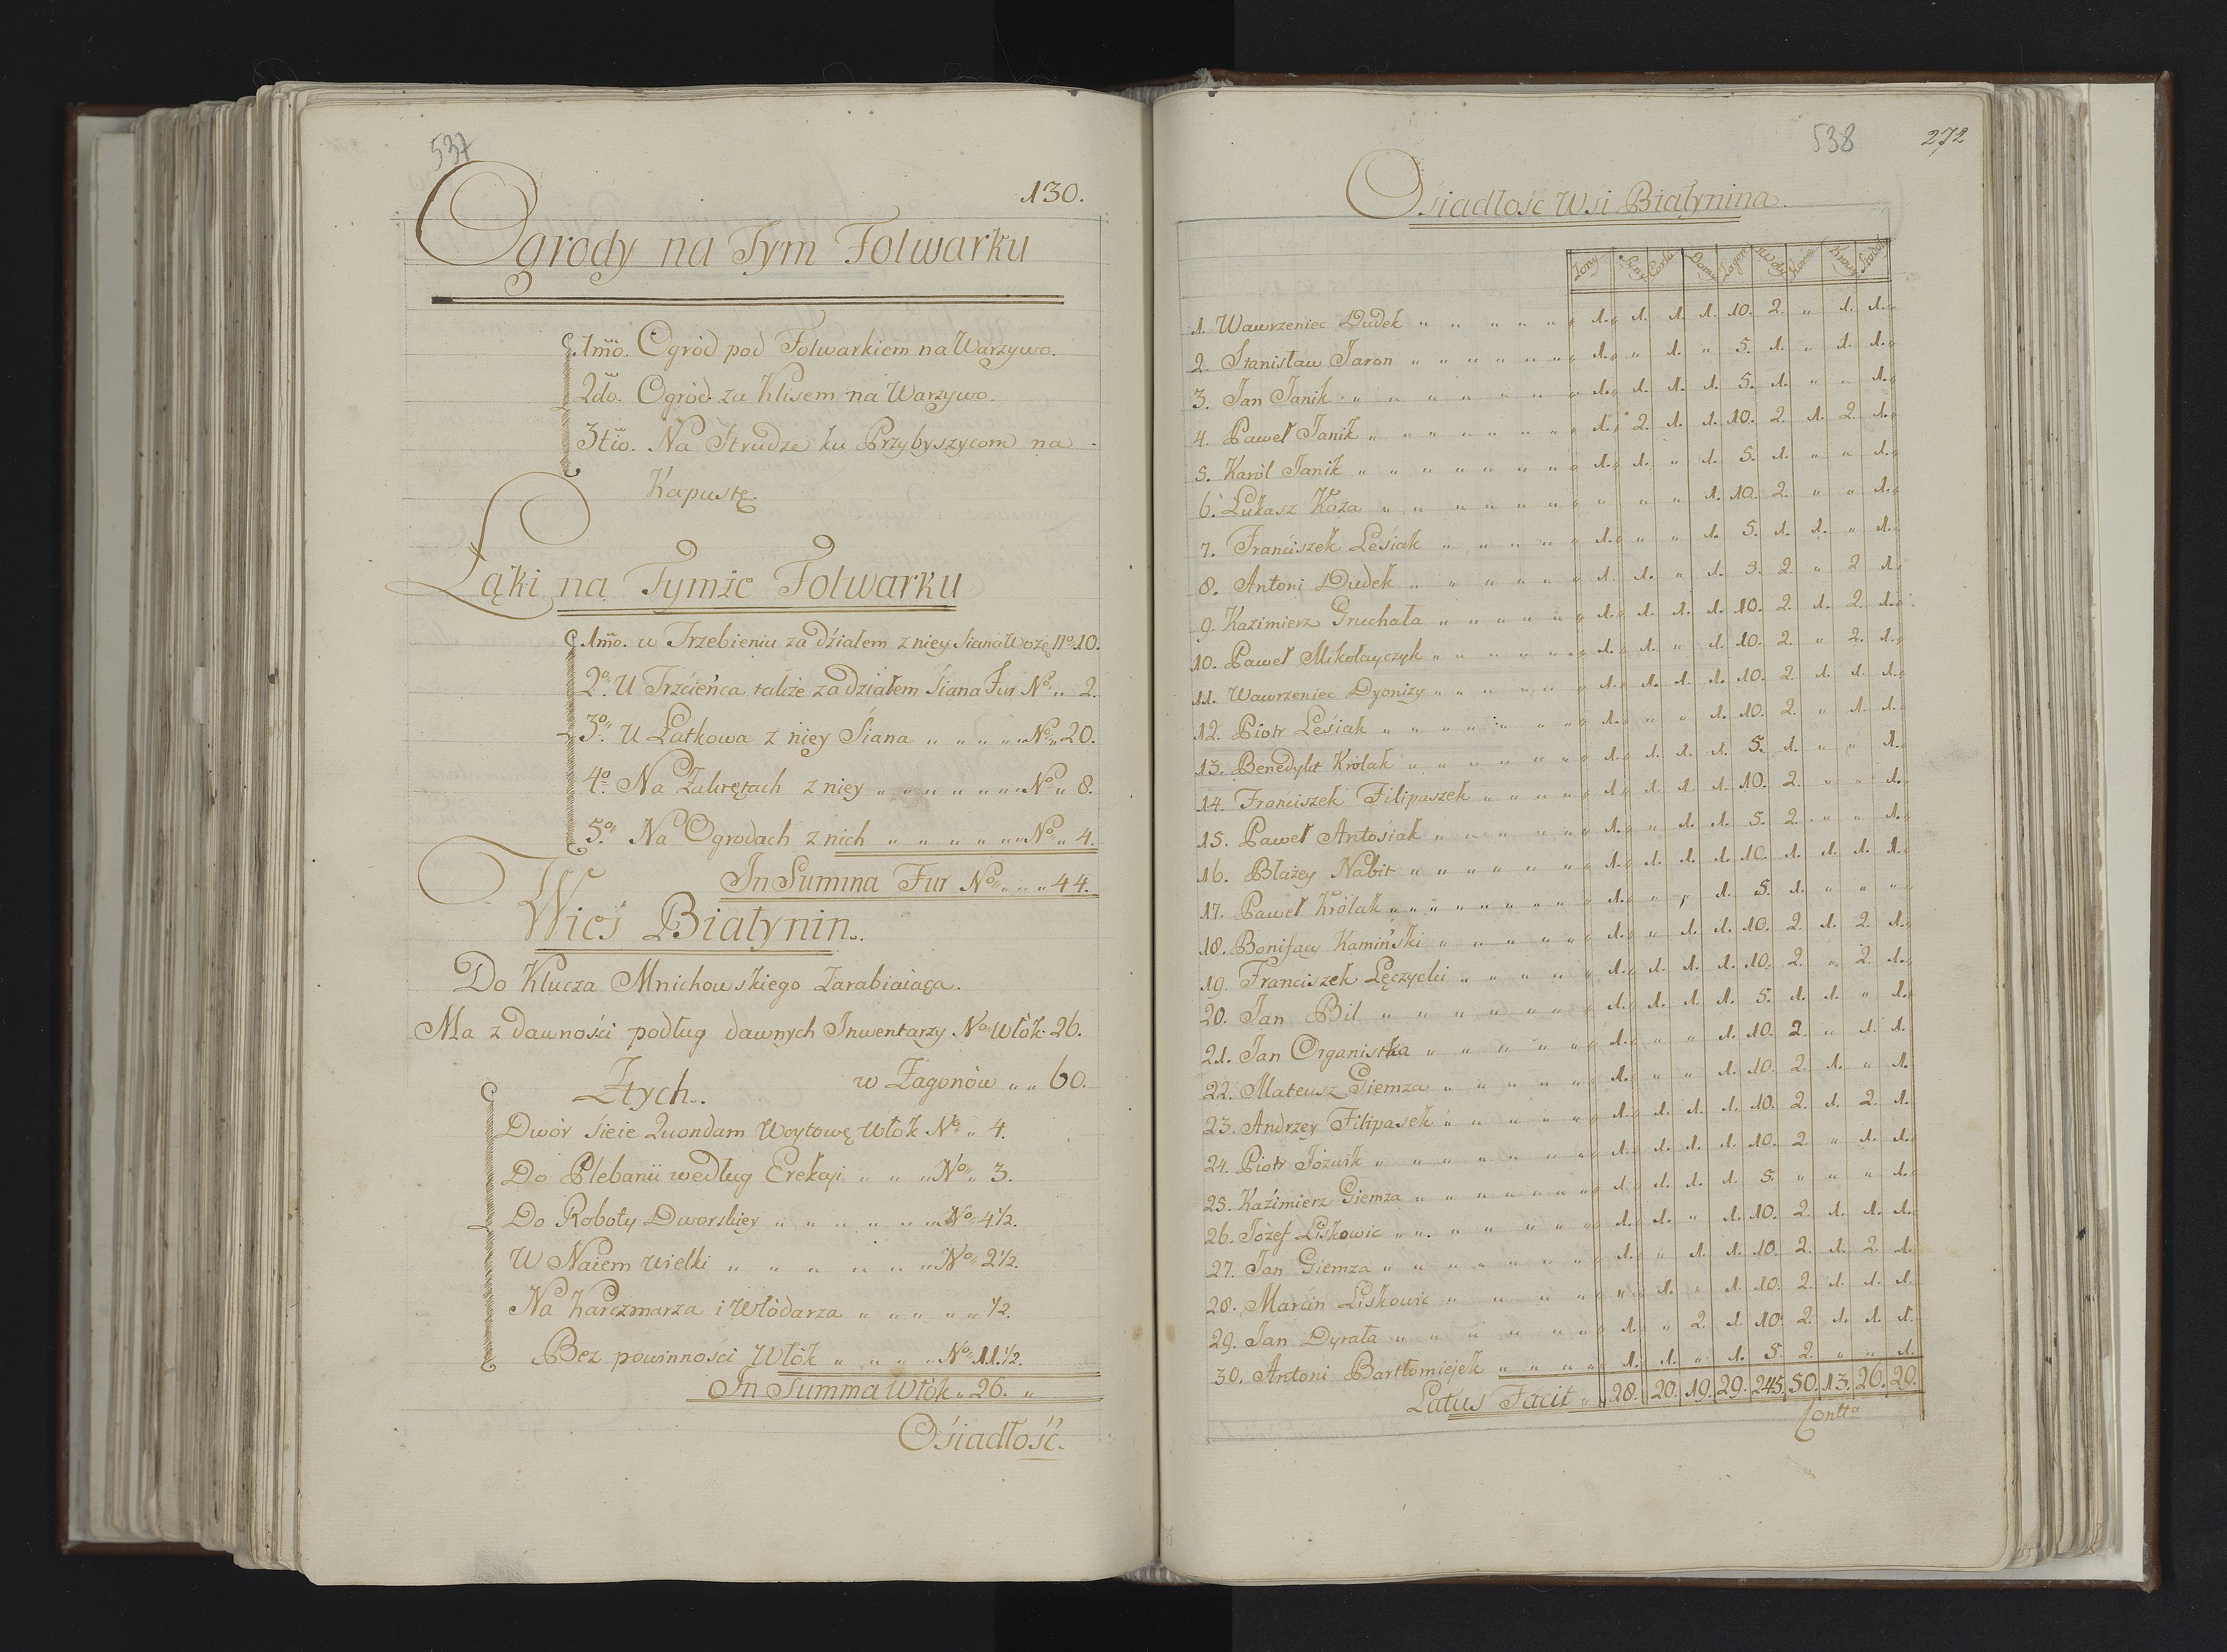 537
130.
Ogrody na Tym Folwarku
1mo. Ogród pod Folwarkiem na Warzywo.
2do. Ogród za Klisem na Warzywo.
3tio. Na Strudze ku Przybyszycom na
Kapustę.
Łąki na Tymże Folwarku
1mo. w Trzebieniu za działem z niey Siana Wozę No 10.
2o. U Trzcieńca także za działem Siana Fur No „ 2.
3o. U Łatkowa z niey Siana „ „ „ „ „ No „ 20.
4o. Na Zakrętach z niey „ „ „ „ „ „ „ No „ 8.
5o. Na Ogrodach z nich „ „ „ „ „ „ „ No „ 4.
In Summa Fur No „ „ „ 44.
Wieś Białynin.
Do Klucza Mnichowskiego Zarabiaiąca.
Ma z dawności podług dawnych Inwentarzy No Włók 26.
Z tych. w Zagonów „ „ 60.
Dwór sieie Quondam Woytowę Włok No „ 4.
Do Plebanii według Erekcyi „ „ „ No „ 3.
Do Roboty Dworskiey „ „ „ „ „ „ No 4 1/2.
W Naiem wielki „ „ „ „ „ „ No 2 1/2.
Na Karczmarza i Włódarza „ „ „ „ „ 1/2.
Bez powinności Włók „ „ „ „ No 11. 1/2.
In Summa Włók „ 26. „
Ośiadłość.
538
272
Ośiadłość Wsi Białynina.
Żony Syny Corki Domy Zagony Woły Konie Krowy
1. Wawrzeniec Dudek „ „ „ „ „ „ 1. 1. 1. 1. 10. 2. „ 1. 1.
2. Stanisław Jaron „ „ „ „ „ „ 1. „ 1. „ 5. 1. „ 1. 1.
3. Jan Janik „ „ „ „ „ „ 1. 1. 1. 1. 5. 1. „ „ 1.
4. Paweł Janik „ „ „ „ „ „ 1. 2. 1. 1. 10. 2. 1. 2. 1.
5. Karól Janik „ „ „ „ „ „ 1. 1. „ 1. 5. 1. „ „ 1.
6. Łukasz Koza „ „ „ „ „ „ „ „ „ 1. 10. 2. „ „ 1.
7. Franciszek Leśiak „ „ „ „ „ 1. „ „ 1. 5. 1. 1. „ 1.
8. Antoni Dudek „ „ „ „ „ „ 1. 1. „ 1. 5. 2. „ 2 1.
9. Kazimierz Gruchała „ „ „ „ „ „ 1. 1. 1. 1. 10. 2. 1. 2. 1.
10. Paweł Mikołayczyk „ „ „ „ „ „ 1. 1. „ 1. 10. 2. „ 2. 1.
11. Wawrzeniec Dyonizy „ „ „ „ „ „ 1. 1. 1. 1. 10. 2. 1. 1. 1.
12. Piotr Leśiak „ „ „ „ „ „ 1. „ „ 1. 10. 2. „ 1. 1.
13. Benedykt Krolak „ „ „ „ „ „ 1. 1. 1. 1. 5. 1. „ „ 1.
14. Franciszek Filipaszek „ „ „ „ „ 1. 1. 1. 1. 10. 2. „ „ 1.
15. Paweł Antośiak „ „ „ „ „ „ 1. „ 1. 1. 5. 2. „ „ 1.
16. Błażey Nabit „ „ „ „ „ „ 1. 1. 1. 1. 10. 1. 1. 1. 1.
17. Paweł Królak „ „ „ „ „ „ 1. „ „ 1. 5. 1. „ „ „
18. Bonifacy Kamiński „ „ „ „ „ „ 1. „ 1. 1. 10. 2. 1. 2. 1.
19. Franciszek Łęczycki „ „ „ „ „ 1. 1. 1. 1. 10. 2. „ 2. 1.
20. Jan Bil „ „ „ „ „ „ 1. 1. 1. 1. 5. 1. 1. „ 1.
21. Jan Organistka „ „ „ „ „ „ 1. „ „ 1. 10. 2. „ 1. 1.
22. Mateusz Giemza „ „ „ „ „ „ 1. „ „ 1. 10. 2. 1. „ 1.
23. Andrzey Filipasek „ „ „ „ „ „ 1. 1. 1. 1. 10. 2. 1. 2. 1.
24. Piotr Jóźwik „ „ „ „ „ „ 1. 1. 1. 1. 10. 2. „ 1. 1.
25. Kaźimierz Giemza „ „ „ „ „ „ 1. 1. 1. 1. 5. „ „ „ 1.
26. Józef Liskowic „ „ „ „ „ „ 1. 1. „ 1. 10. 2. 1. 1. 1.
27. Jan Giemza „ „ „ „ „ „ 1. „ 1. 1. 10. 2. 1. 2. 1.
28. Marcin Liskowic „ „ „ „ „ „ 1. „ 1. 10. 2. 1. 1. 1.
29. Jan Dyrała „ „ „ „ „ „ 1. „ 2. 1. 10. 2. 1. 1. 1.
30. Antoni Bartłomiejek „ „ „ „ „ 1. 1. „ 1. 5. 2. „ „ 1.
Latus Facit „ 28. 20. 19. 29. 245. 50. 13. 26. 29.
Contto